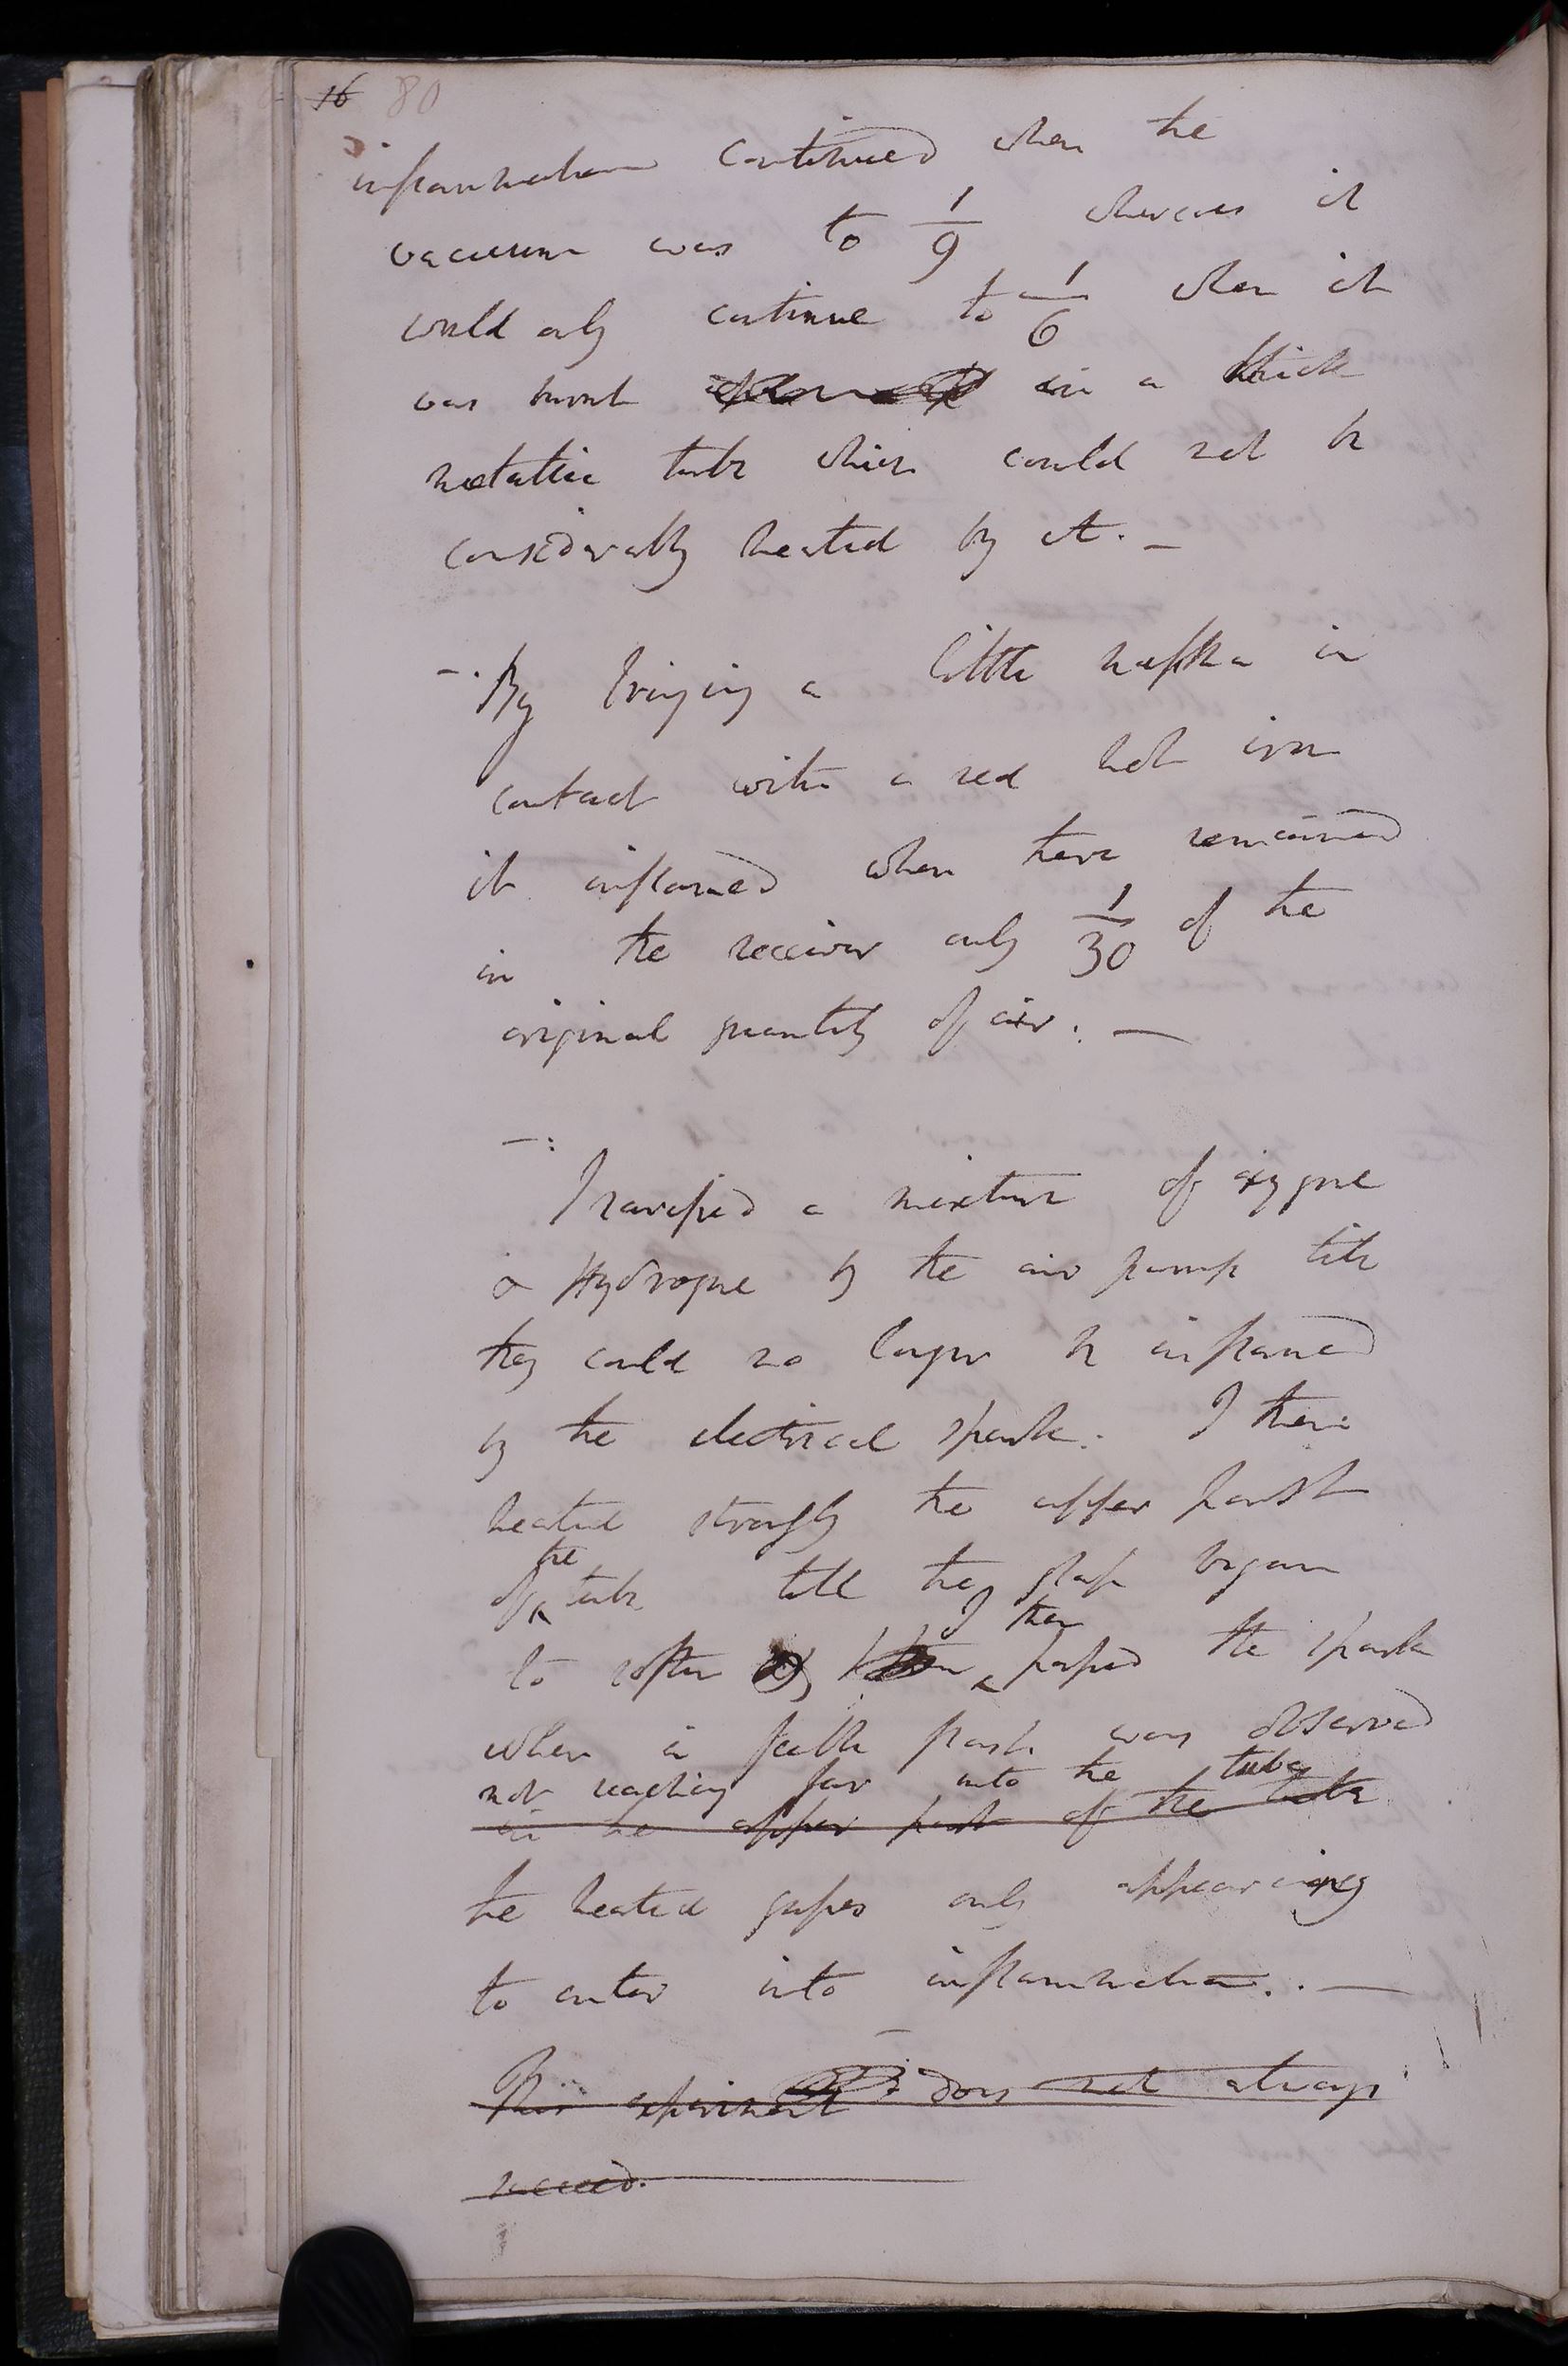 16 80
inflammation continued when the
vacuum was to 1/9 whereas it
could only continue to 1/6 when it
was burnt in a thick
metallic tube which could not be
considerably heated by it. —
— . By bringing a little naptha in
contact with a red hot iron
it inflamed when there remained
in the receiver only 1/30 of the
original quantity of air. —
— :
I rarefied a mixture of oxygene
& Hydrogene by the air pump till
they could no longer be inflamed
by the electrical spark. I then
heated strongly the upper part
the
of tube till the glass began
I then
to soften passed the spark
when a feeble flash was observed
not reaching far into the tube
in the upper part of the tube
the heated gases only appearing
to enter into inflammation. . —
This experiment does not always
succeed.